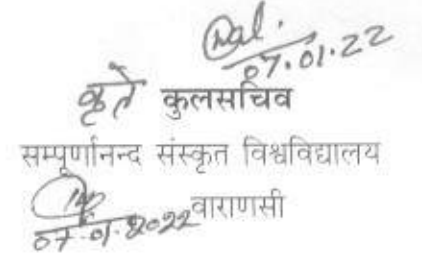 07.01.22
कृते कुलसचिव
सम्पूर्णानन्द संस्कृत विश्वविद्यालय
वाराणसी
07.01.2022